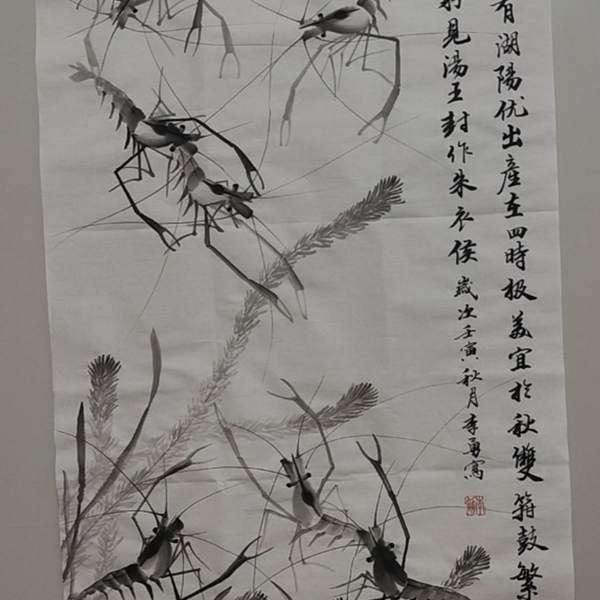 有湖陽优出產在四時极美宜於秋雙箝鼓繁
見湯王封作朱衣侯
歲次壬寅秋月李勇寫